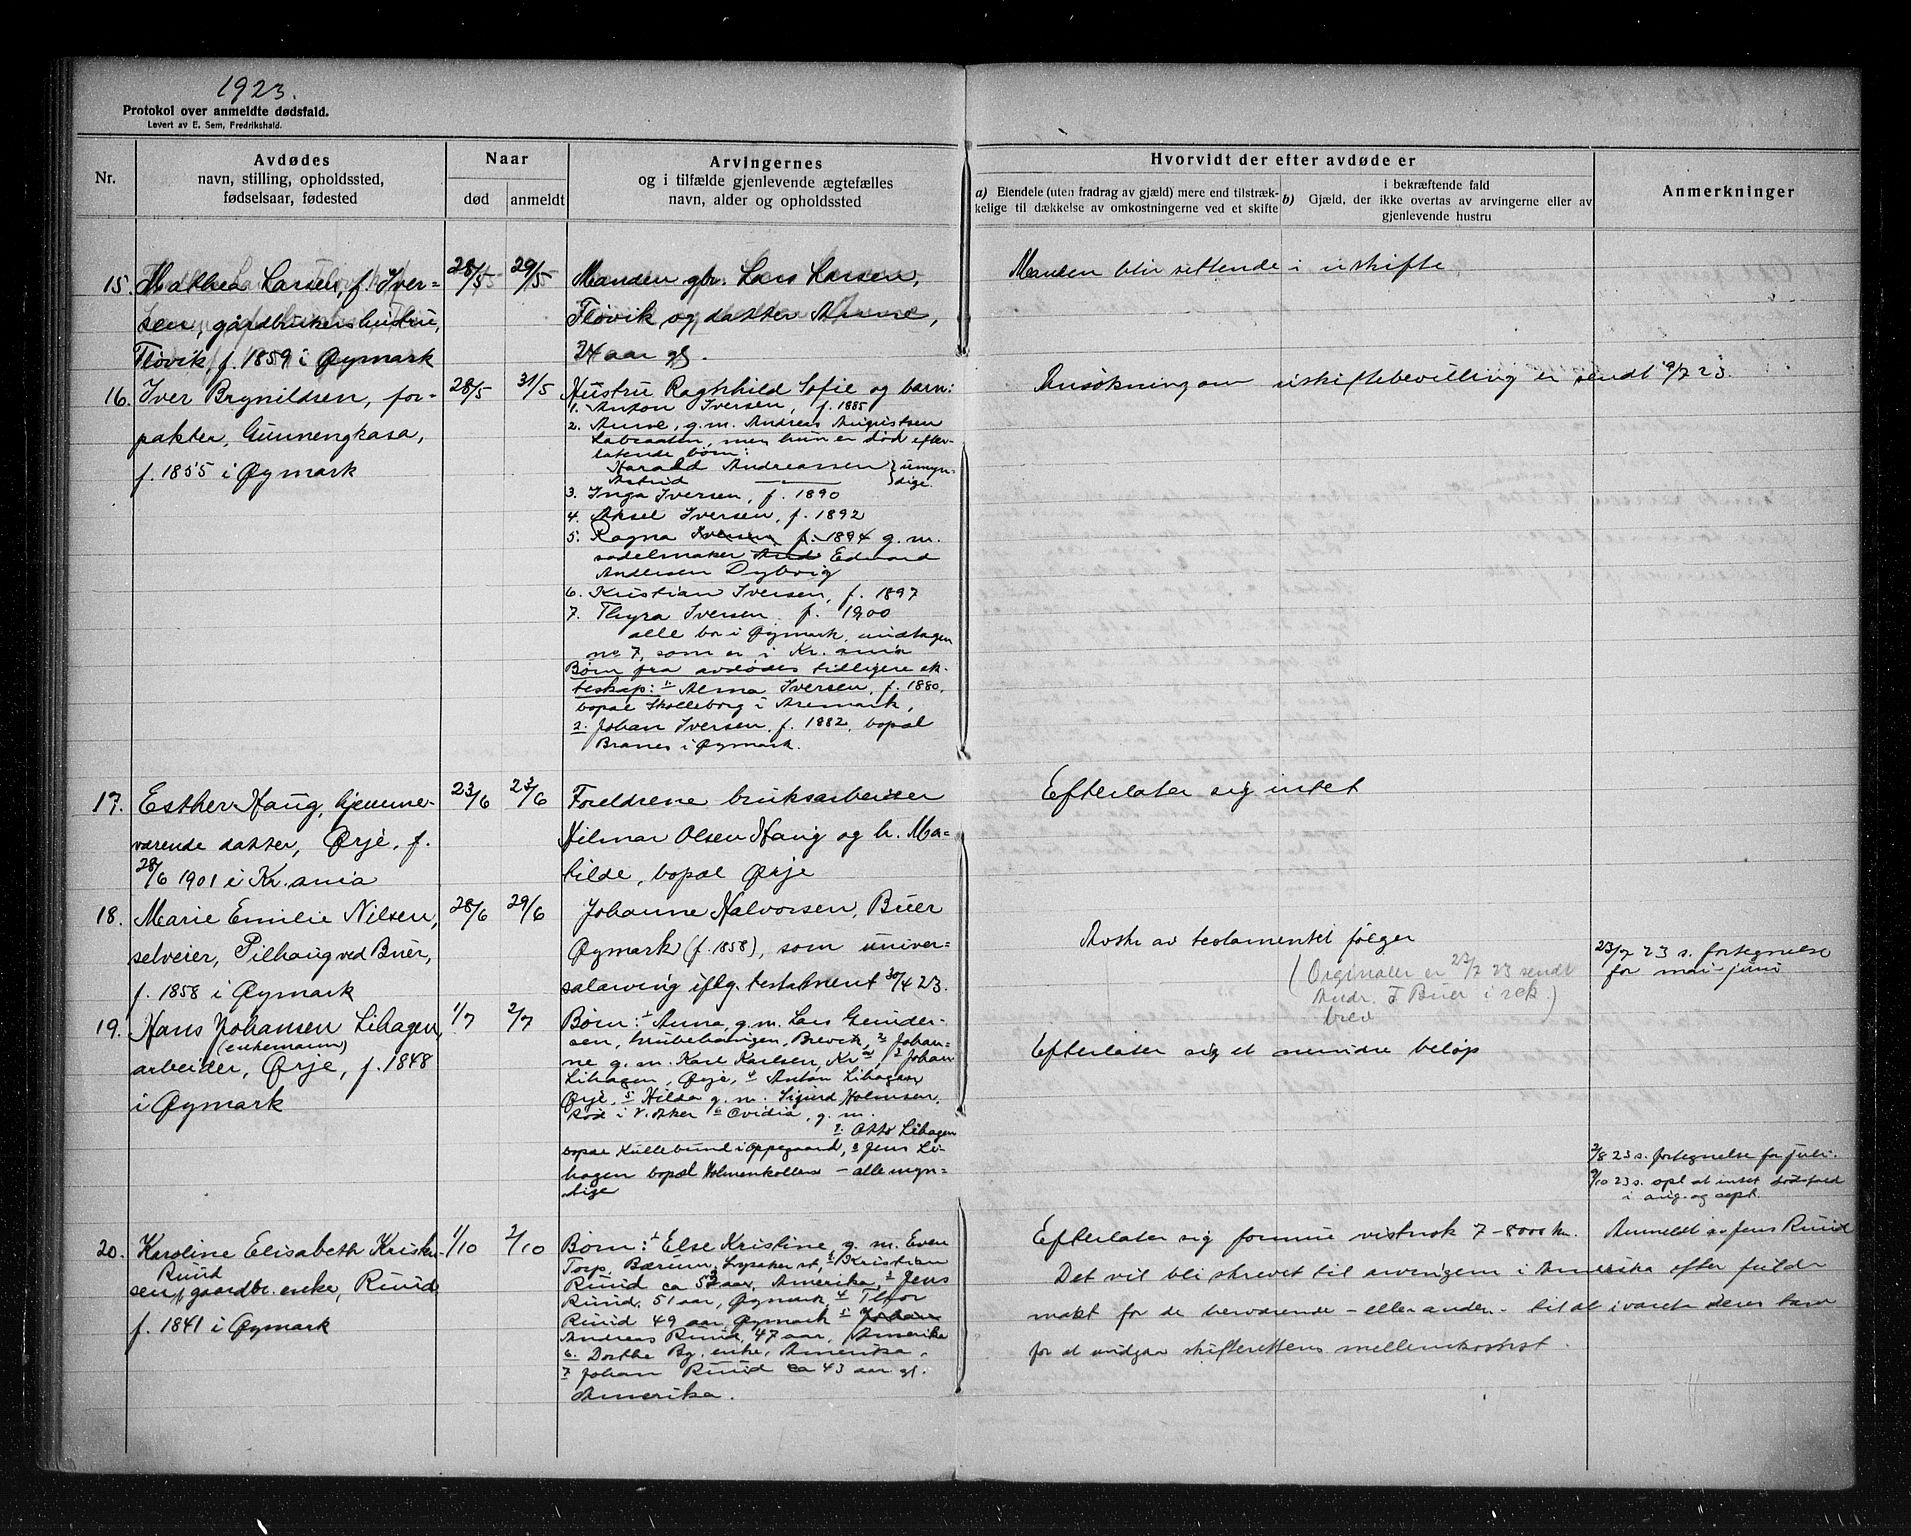 1923.
Protokol over anmeldte dødsfald.
Levert av E. Sem, Fredrikshald.
Nr.
Avdødes
navn, stilling, opholdssted,
fødselsaar, fødested
Naar
død
anmeldt
Arvingernes
og i tilfælde gjenlevende ægtefælles
navn, alder og opholdssted
Hvorvidt der efter avdøde er
a) Eiendele (uten fradrag av gjæld) mere end tilstræk-
kelige til dækkelse av omkostningerne ved et skifte
i bekræftende fald
b) Gjæld, der ikke overtas av arvingerne eller av
gjenlevende hustru
Anmerkninger
15. Mathea Larsen, f. Iver-
sen, gårdbrukers hustru,
Fløvik, f. 1859 i Øymark
28/5
29/5
Manden gbr. Lars Larsen,
Fløvik og datter Anne,
24 aar gl.
Manden blir sittende i uskifte
16. Iver Brynildsen, for-
pakter, Gunnengkasa,
f. 1855 i Øymark
28/5
31/5
Hustru Ragnhild Sofie og barn:
1. Anton Iversen, f. 1885
2. Anne, g. m. Andreas Augustsen
Labraaten, men hun er død efter-
latende børn:
Harald Andreassen } umyn-
Astrid — } dige.
3. Inga Iversen, f. 1890
4. Aksel Iversen, f. 1892
5. Ragna Iversen f. 1894 g. m.
sadelmaker And Edvard
Andersen Dybvig
6. Kristian Iversen, f. 1897
7. Thyra Iversen f. 1900
alle bor i Øymark, undtagen
no 7, som er i Kr.ania
Børn fra avdødes tidligere ek-
teskap: 1. Alma Iversen, f. 1880,
bopæl Skolleborg i Aremark,
2. Johan Iversen, f. 1882, bopæl
Branes i Øymark.
Ansøkning om uskiftebevilling er sendt 9/7 23.
17. Esther Haug, hjemme-
værende datter, Ørje, f.
28/6 1901 i Kr.ania
23/6
23/6
Foreldrene bruksarbeider
Hilmar Olsen Haug og h. Ma-
tilde, bopæl Ørje
Efterlater sig intet
18. Marie Emilie Nilsen,
selveier, Pilhaug ved Buer,
f. 1858 i Øymark
28/6
29/6
Johanne Halvorsen, Buer
Øymark (f. 1858), som univer-
salarving iflg. testament 30/4 23.
Avskr. av testamentet følger
(Orginalen er 23/7 23 sendt
Andr. F. Buer i rek.)
brev
23/7 23 s. fortegnelse
for mai-juni
19. Hans Johansen Lihagen,
(enkemann)
arbeider, Ørje, f. 1848
i Øymark
1/7
2/7
Børn: 1 Anna, g. m. Lars Gunder-
sen, Grubehaugen, Brevik, 2 Johan-
ne g. m. Karl Karlsen, Kr.a, 3 Johan
Lihagen, Ørje, 4 Anton Lihagen
Ørje, 5 Hilda g. m. Sigurd Holmsen,
Rød i V. Aker 6 Ovidia, g. m.
7. Otto Lihagen
bopæl Kullebund i Oppegaard, 8 Jens Li-
hagen bopæl Holmenkollen – alle myn-
dige
Efterlater sig et mindre beløp
2/8 23 s. fortegnelse for juli.
9/10 23 s. opl. at intet dødsfald
i aug. og sept.
20. Karoline Elisabeth Kristen-
Ruud
sen, gaardbr. enke, Ruud
f. 1841 i Øymark
1/10
2/10
Børn: 1 Else Kristine, g. m. Even
Torp, Bærum, Lysaker st, 2 Kristian
Ruud ca 53 aar, Amerika, 3 Jens
Ruud, 51 aar, Øymark 4 Thor
Ruud 49 aar, Øymark 5 Johan
Andreas Ruud, 47 aar, Amerika
6. Dorthe By, enke, Amerika,
7 Johan Ruud ca 43 aar gl.
Amerika.
Efterlater sig formue vistnok 7–8000 kr.
Det vil bli skrevet til arvingene i Amerika efter fuld-
makt for de herværende – eller anden – til at ivareta deres tarv
for at undgaa skifterettens mellemkomst.
Anmeldt av Jens Ruud